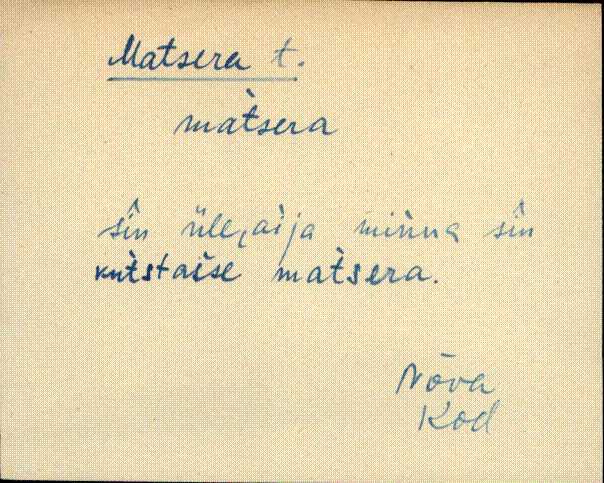 Matsera t.
màtsera
sîn üle, aìja minna sîn
kutstaìse matsera.
Nõva
Kod